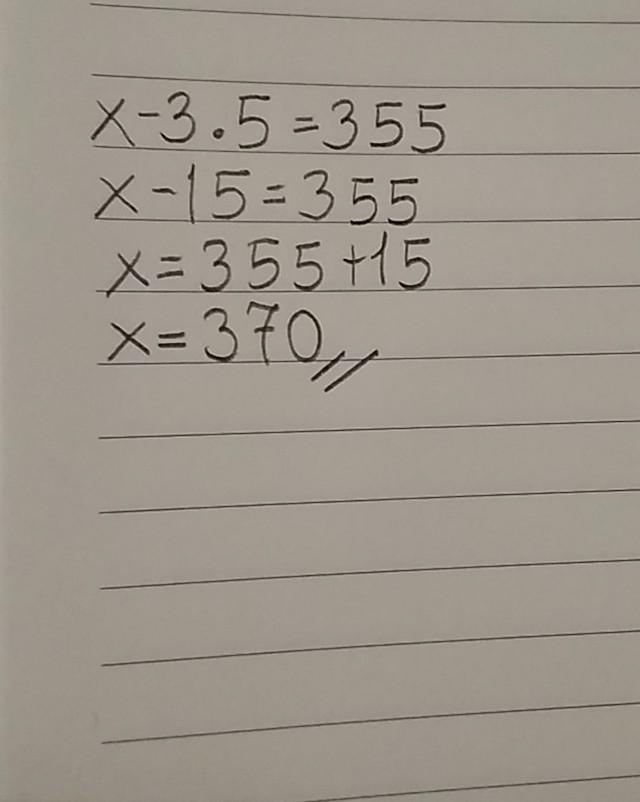 x-3.5=355
x-15=355
x=355+15
x=370//